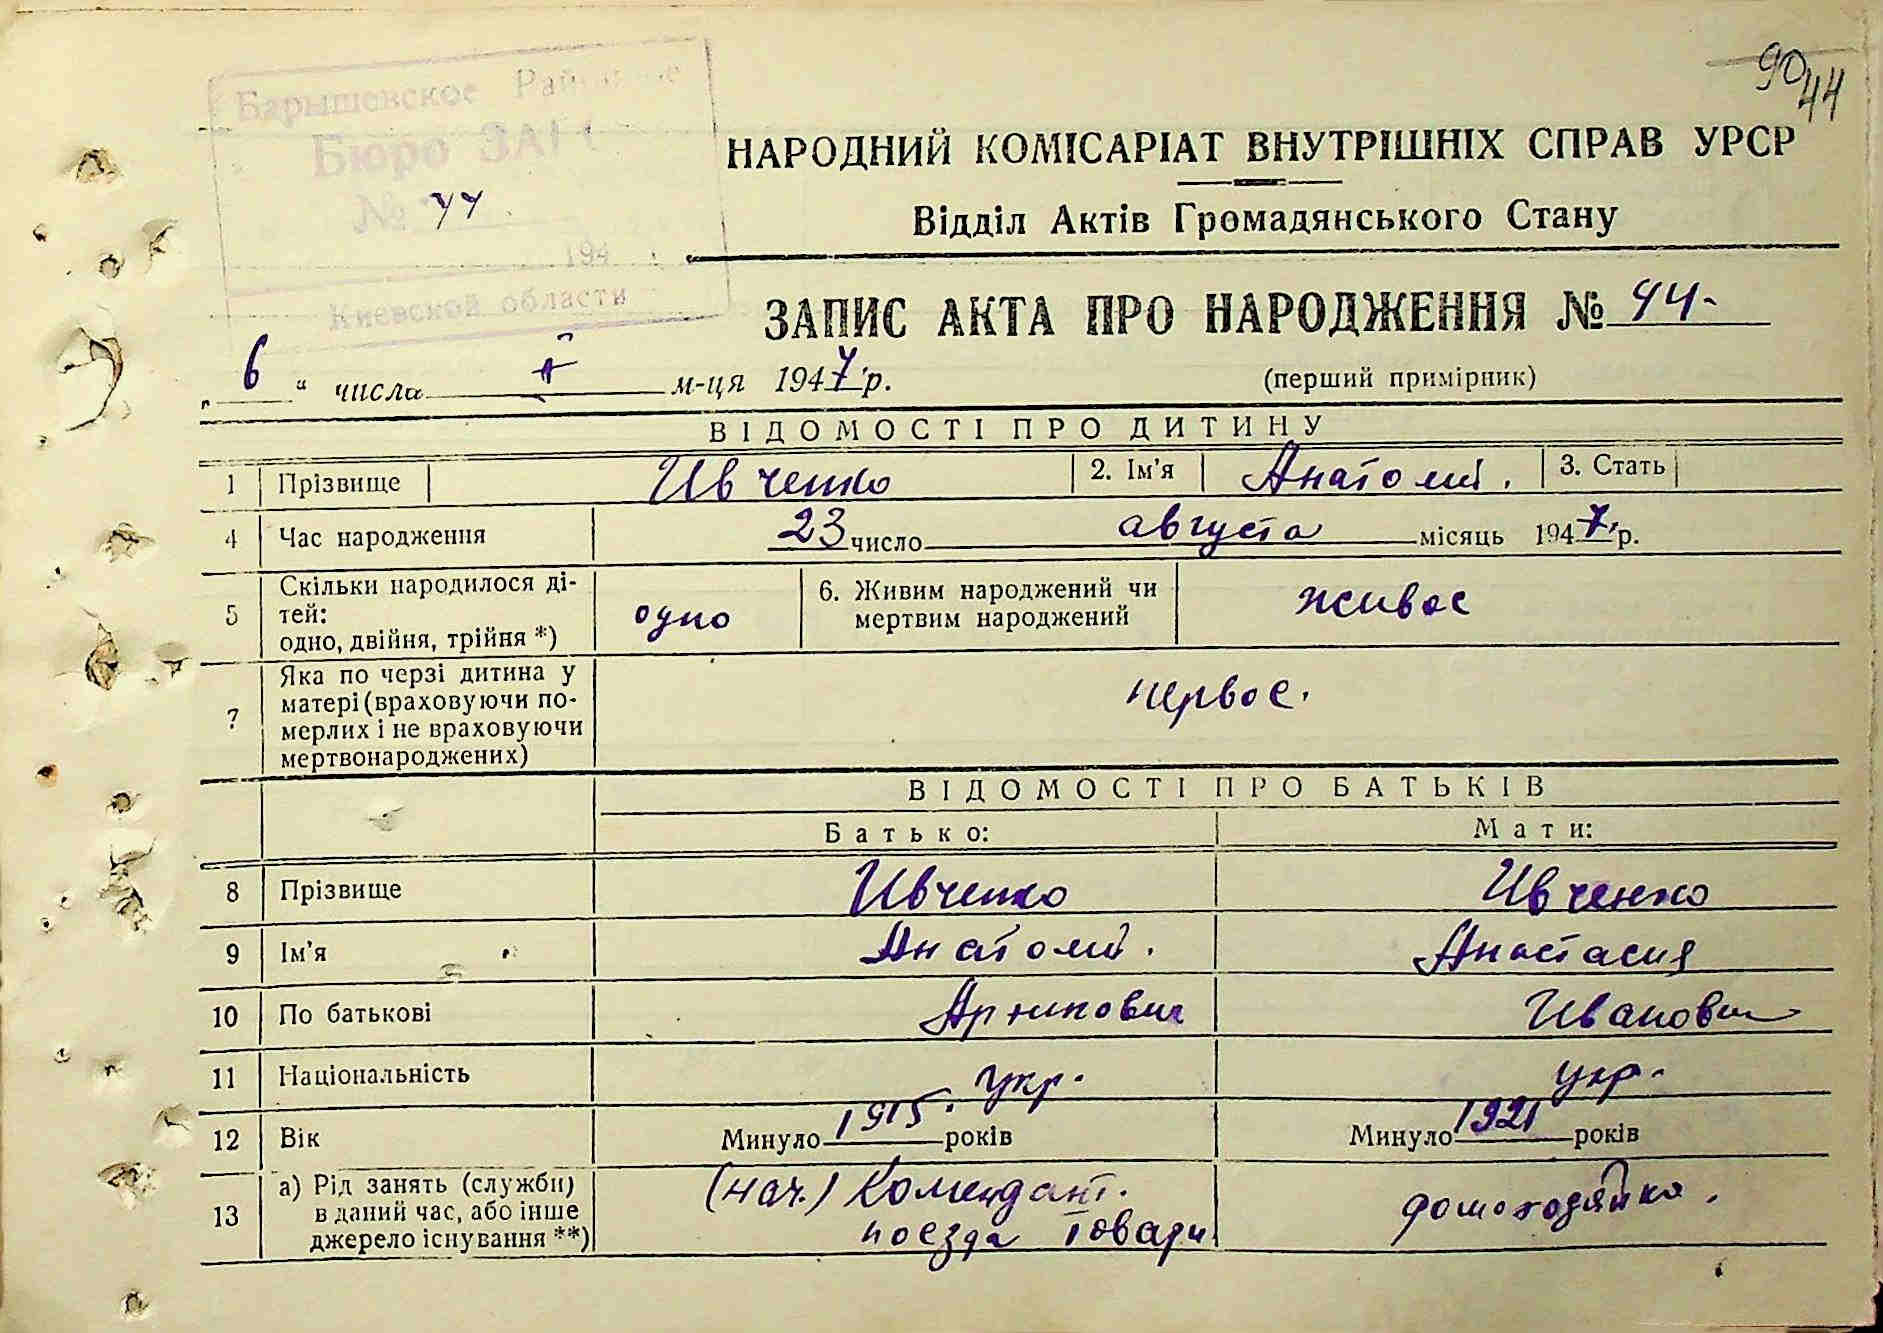 90 44
Барышевское Районное
Бюро ЗАГС
№ 44
194
Киевской области
НАРОДНИЙ КОМІСАРІАТ ВНУТРІШНІХ СПРАВ УРСР
Відділ Актів Громадянського Стану
ЗАПИС АКТА ПРО НАРОДЖЕННЯ № 44.
„ 6 “ числа м-ця 1947 р.
(перший примірник)
ВІДОМОСТІ ПРО ДИТИНУ
1 Прізвище Ивченко 2. Ім'я Анатолий. 3. Стать
4 Час народження 23 число августа місяць 1947 р.
5 Скільки народилося ді-
тей:
одно, двійня, трійня *) одно
6. Живим народжений чи
мертвим народжений живое
7 Яка по черзі дитина у
матері (враховуючи по-
мерлих і не враховуючи
мертвонароджених) первое.
ВІДОМОСТІ ПРО БАТЬКІВ
Батько: Мати:
8 Прізвище Ивченко Ивченко
9 Ім'я Анатолий. Анастасия
10 По батькові Архипович Иванович
11 Національність укр. укр.
12 Вік Минуло 1915. років Минуло 1921 років
13 а) Рід занять (служби)
в даний час, або інше
джерело існування **)
(нач.) Комендант.
поезда товари
домохозяйка.